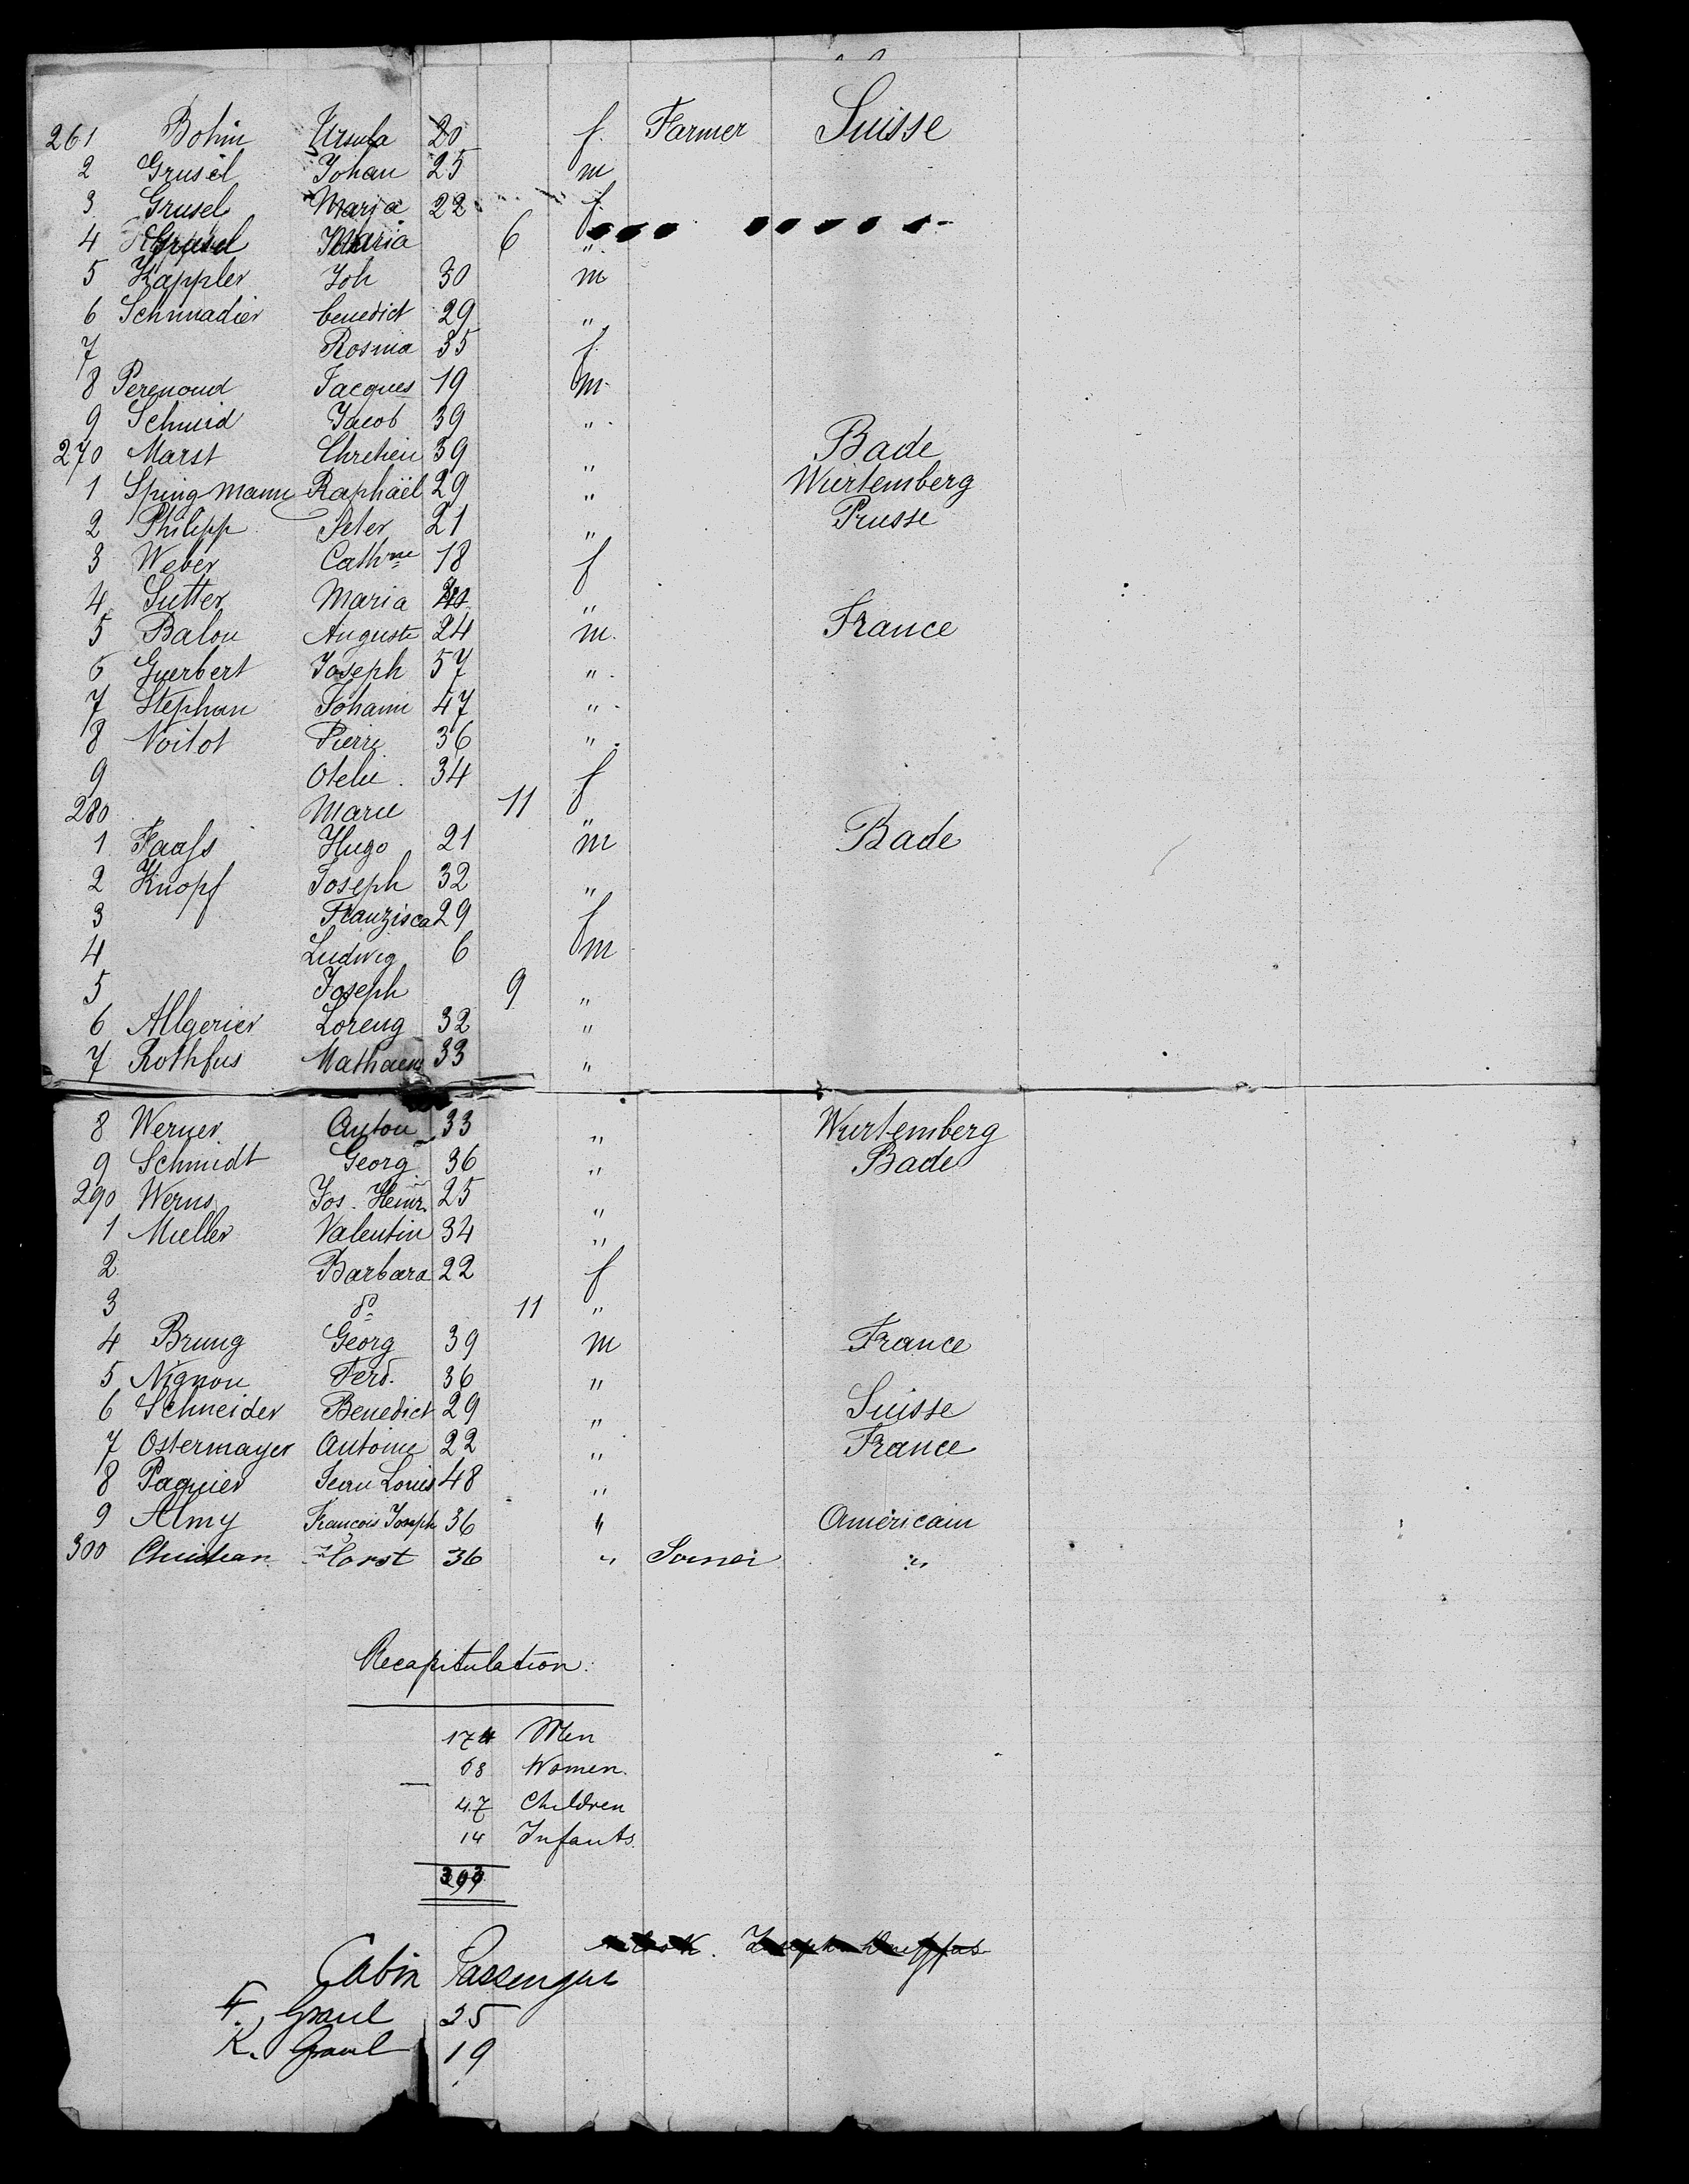 261 Bohin Ursula 20 f. Farmer Suisse
2 Grusel Johan 25 m
3 Grusel Maria 22 f
4 Grusel Maria 6 "
5 Kappler Joh 30 m
6 Schmadier benedict 29 "
7 Rosina 35 f
8 Perenoud Jacques 19 m
9 Schmid Jacob 39 "
270 Marst Chretien 39 " Bade
1 Springmann Raphaël 29 " Würtemberg
2 Philipp Peter 21 " Prusse
3 Weber Cathne 18 f
4 Sutter Maria "
5 Balon Auguste 24 m. France
6 Guerbert Joseph 57 "
7 Stephan Johann 47 "
8 Voitot Pierre 36 "
9 Otelie 34 f
280 Marie 11 "
1 Faass Hugo 21 m Bade
2 Knopf Joseph 32 "
3 Franzisca 29 f
4 Ludwig 6 m
5 Joseph 9 "
6 Allgerier Lorenz 32 "
7 Rothfus Mathaeus 33 "
8 Werner Anton 33 " Wurtemberg
9 Schmidt Georg 36 " Bade
290 Werns Jos. Heinr. 25 "
1 Muller Valentin 34 "
2 Barbara 22 f
3 do 11 "
4 Brung Georg 39 m France
5 Nignon Ferd. 36 "
6 Schneider Benedict 29 " Suisse
7 Ostermayer Antoine 22 " France
8 Paquier Jean Louis 48 "
9 Almy Francois Joseph 36 " Américain
300 Christian Horst 36 " "
Recapitulation.
174 Men
68 Women.
47 Children
14 Infants.
303
Cabin Passengers
F. Graul 25
K. Graul 19